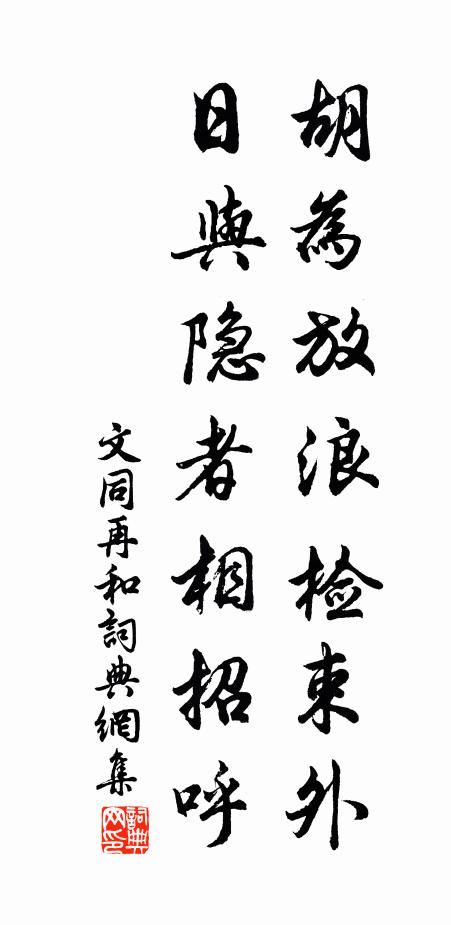 胡為放浪检束外
日與隐者相招呼
文同再和詞典網集
詞典
网印